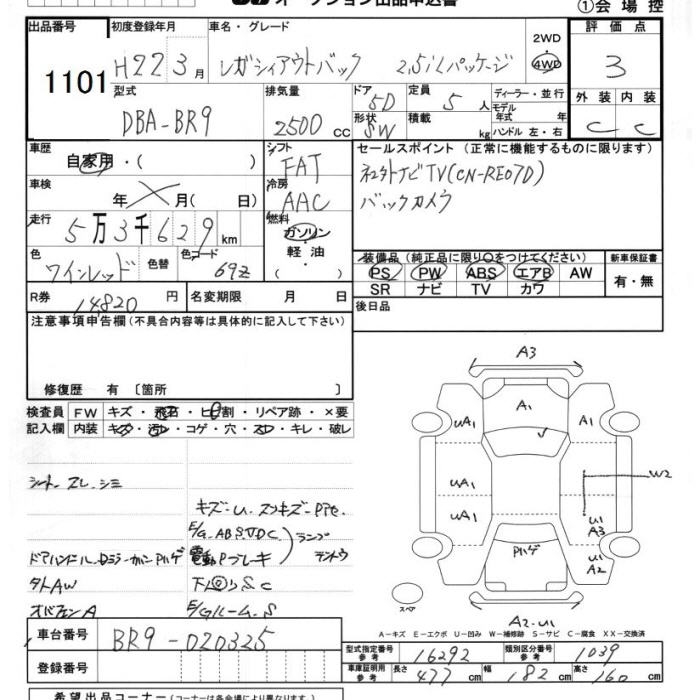 オークション出品申込書
①会場控
出品番号 1101
初度登録年月 H22 3月
車名・グレード
レガシィアウトバック 2,5iLパッケージ
2WD
4WD
評価点 3
外装 内装
C C
型式 DBA-BR9
排気量 2500cc
ドア 5D
形状 SW
定員 5人
積載 kg
ディーラー・並行
モデル年式 年式
ハンドル 左・右
車歴 自家用・( )
シフト FAT
冷房 AAC
車検 年 月( 日)
走行 5万3千629km
燃料 ガソリン・軽油・( )
色 ワインレッド
色替
色コード 69Z
R券 14,820円
名変期限 月 日
セールスポイント (正常に機能するものに限ります)
社外ナビTV(CN-RE07D)
バックカメラ
装備品(純正品に限り○をつけてください)
PS PW ABS エアB AW
SR ナビ TV カワ
新車保証書
有・無
後日品
注意事項申告欄(不具合内容等は具体的に記入して下さい)
修復歴 有 〔箇所 〕
検査員記入欄
FW キズ・飛石・ヒビ割・リペア跡・×要
内装 キズ・汚レ・コゲ・穴・スレ・キレ・破レ
シートスレ、シミ
キズ-U、スリキズ-Pite.
E/G、ABS、VDC、電動Pブレーキ ランプテントウ
ドアハンドル、Dミラーカバー Pハゲ
タトAW
下廻りS C
E/Gルーム、S
A3
A1
UA1
A1
UA1
UA1
W2
U1
A3
U1
A2
Pハゲ
スペア
A2-U1
A-キズ E-エクボ U-凹み W-補修跡 S-サビ C-腐食 XX-交換済
車台番号 BR9-020325
登録番号
型式指定番号 参考 16292
類別区分番号 参考 1039
車庫証明用 参考 長さ 477cm 幅 182cm 高さ 160cm
希望出品コーナー(スペースの都合により